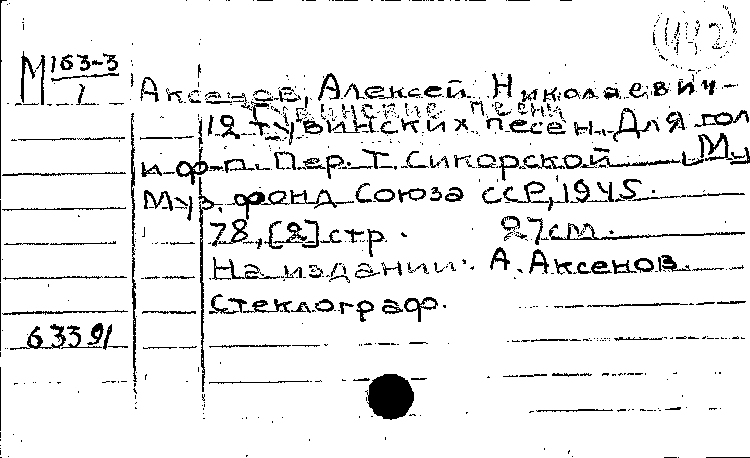 442
М 163-3
1
Аксенов, Алексей Николаевич-
Тувинские песни
12 тувинских песен. Для гол
и ф-п. Пер. Т. Сикорской М.,
Муз. фонд Союза ССР, 1945.
78, [2] стр. 27см.
На издании: А. Аксенов.
Стеклограф.
63391